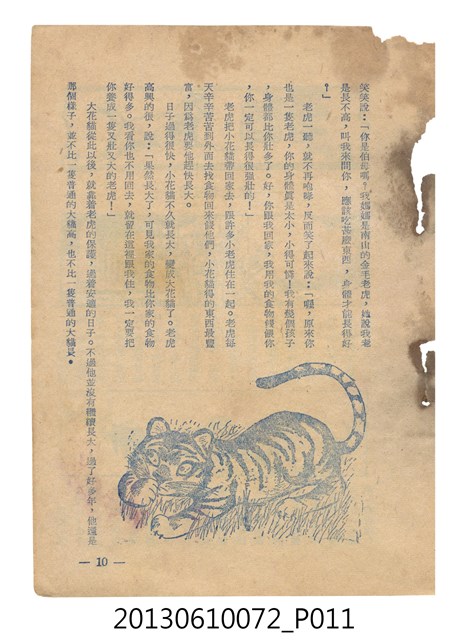 笑笑說：「你是伯母嗎？我媽媽是南山的金毛老虎，她說我老
是長不高，叫我來問你，應該吃甚麼東西，身體才能長得好
！」
老虎一聽，就不再咆哮，反而笑了起來說：「喔，原來你
也是一隻老虎，你的身體眞是太小，小得可憐！我有幾個孩子
，身體都比你壯多了。好，你跟我回家，我用我的食物餵餵你
，你一定可以長得很强壯的！」
老虎把小花貓帶回家去，跟許多小老虎住在一起。老虎每
天辛辛苦苦到外面去找食物回來餵他們，小花貓得的東西最豐
富，因爲老虎要他趕快長大。
日子過得很快，小花貓不久就長大，變成大花貓了。老虎
高興的很，說：「果然長大了，可見我家的食物比你家的食物
好得多。我看你也不用回去，就留在這裡跟我住，我一定要把
你養成一隻又壯又大的老虎！」
大花貓從此以後，就靠着老虎的保護，過着安適的日子。不過他並沒有繼續長大，過了好多年，他還是
那個樣子，並不比一隻普通的大貓高，也不比一隻普通的大貓長。
— 10 —
20130610072_P011